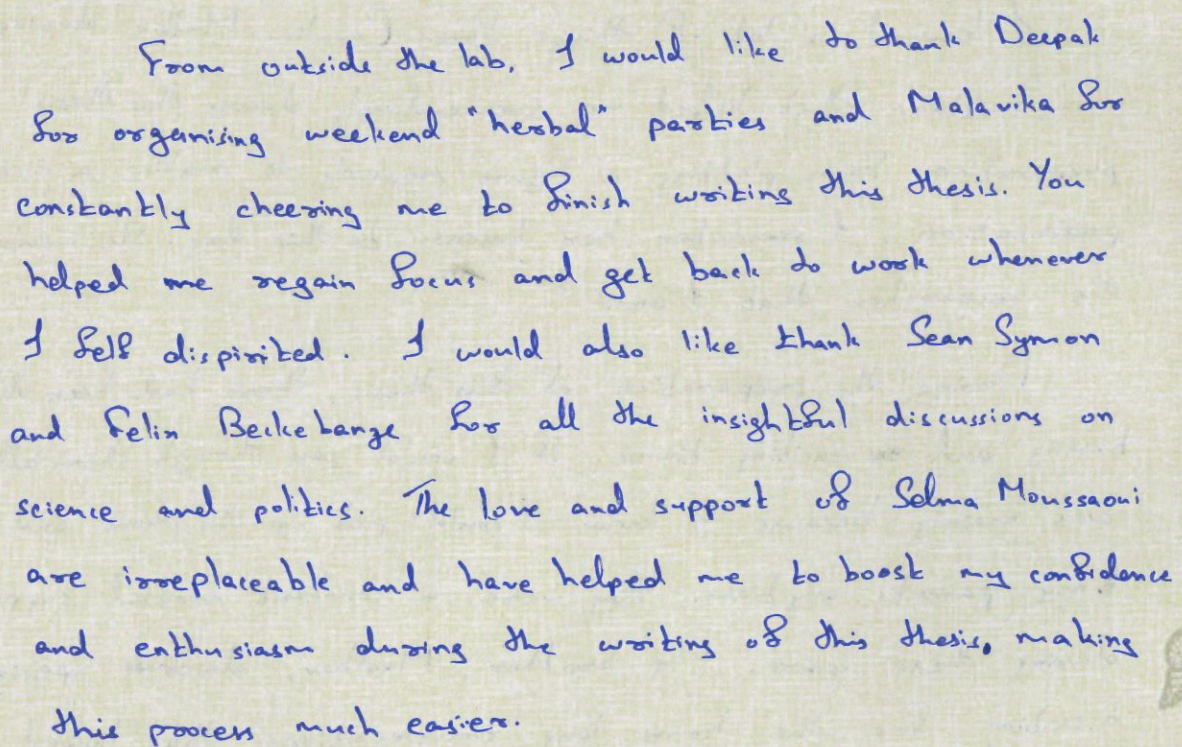 From outside the lab, I would like to thank Deepak
for organising weekend "herbal" parties and Malavika for
constantly cheering me to finish writing this thesis. You
helped me regain focus and get back to work whenever
I felf dispirited. I would also like thank Sean Symon
and Felix Beckebange for all the insightful discussions on
science and politics. The love and support of Selma Moussaoui
are irreplaceable and have helped me to boost my confidence
and enthusiasm during the writing of this thesis, making
this process much easier.